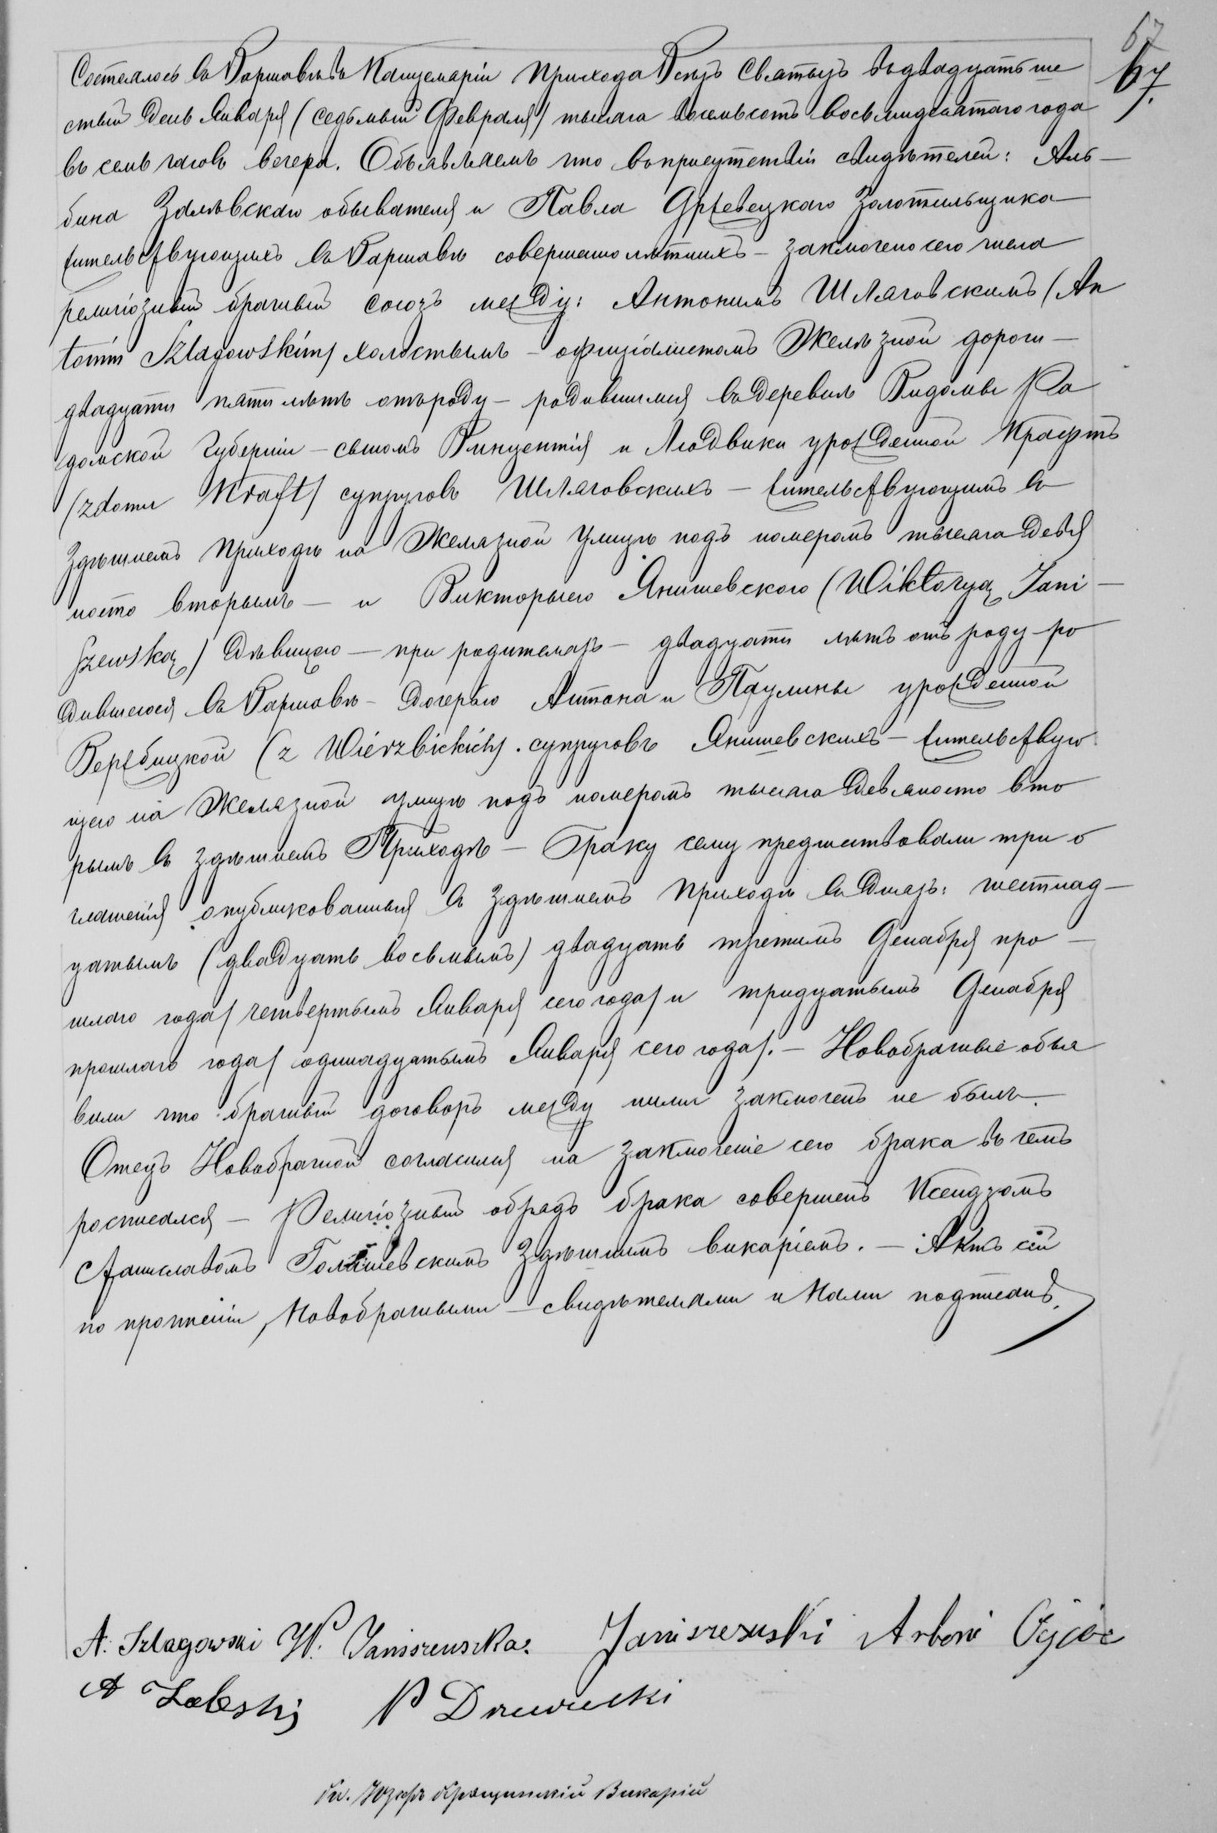 67
67.
Состоялось въ Варшавѣ въ Канцеляріи Прихода Всѣхъ Святыхъ въ двадцать ше
стый день Января (седьмый Февраля) тысяча восемьсотъ восьмидесятаго года
въ семь часовъ вечера. Объявляемъ что въ присутствіи свидѣтелей: Аль-
бина Залѣвскаго обывателя и Павла Држевецкаго Золотильщика
жительствующихъ въ Варшавѣ совершеннолѣтнихъ – заключено сего числа
религіозный брачный союзъ между: Антонимъ Шлаговскимъ (An
tonim Szlagowskim) холостымъ – оффиціалистомъ Желѣзной дороги –
двадцати пяти лѣтъ отъ роду – родившимся въ деревнѣ Видомы Ра
домской Губерніи – сыномъ Винцентія и Людвики урожденной Крафтъ
(z domu Kraft) супруговъ Шлаговскихъ – жительствующимъ въ
здѣшнемъ Приходѣ на Желязной Улицѣ подъ номеромъ тысяча девя
носто вторымъ – и Викторыею Янишевскою (Wiktoryą Jani-
szewską) дѣвицею – при родителяхъ – двадцати лѣтъ отъ роду – ро
дившеюся въ Варшавѣ – дочерью Антона и Паулины урожденной
Вержбицкой (z Wierzbickich). супруговъ Янишевскихъ – жительствую
щею на Желязной улицѣ подъ номеромъ тысяча девяносто вто
рымъ въ здѣшнемъ Приходѣ – Браку сему предшествовали три о
глашенія опубликованныя въ здѣшнемъ Приходѣ въ дняхъ: шестнад-
цатымъ (двадцать восьмымъ) двадцать третимъ Декабря про-
шлаго года / четвертымъ Января сего года / и тридцатымъ Декабря
прошлаго года / одинадцатымъ Января сего года /. – Новобрачные объя
вили что брачный договоръ между ними заключенъ не былъ.
Отецъ Новобрачной согласился на заключеніе сего брака въ чемъ
росписался – Религіозный обрядъ брака совершенъ Ксендзомъ
Станиславомъ здѣшнимъ викаріемъ. – Актъ сей
по прочтеніи, Новобрачными – свидѣтелями и Нами подписанъ.
A. Szlagowski W. Janiszewska. Janiszewski Antoni Ojciec
A Zaleski P Drzewiecki
Кс. Юзефъ Викарій